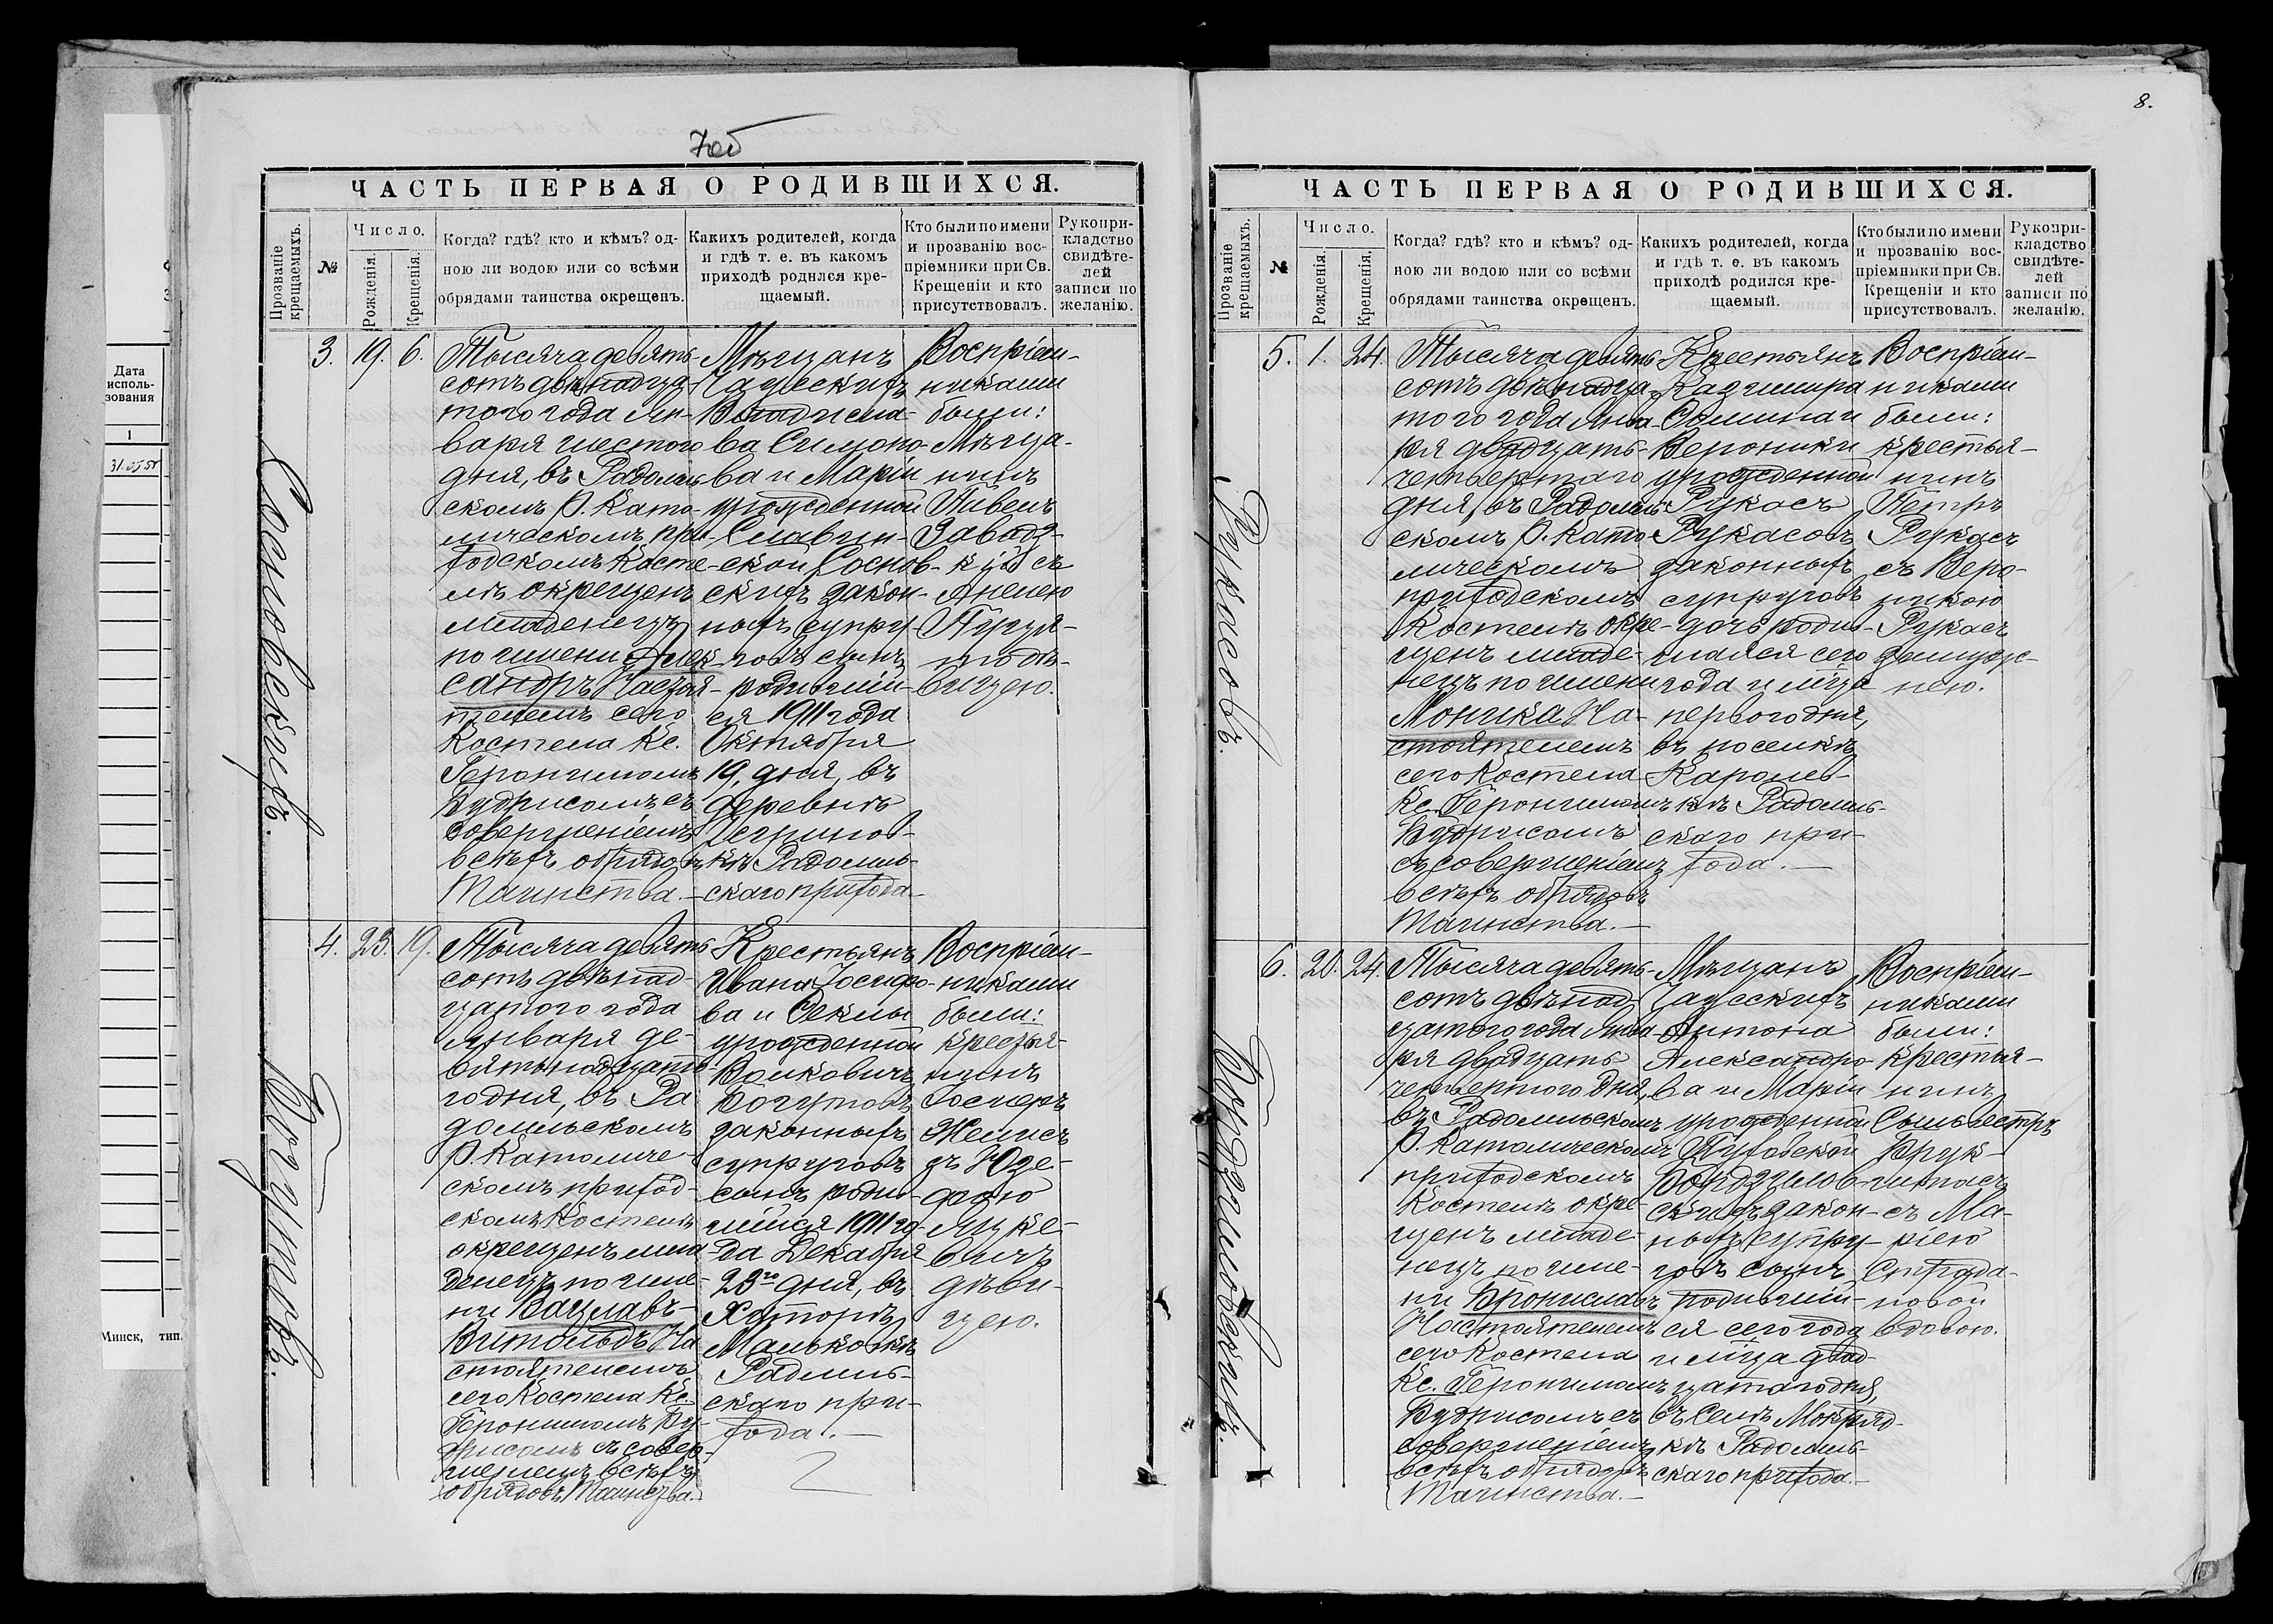 7об
ЧАСТЬ ПЕРВАЯ О РОДИВШИХСЯ.
Прозваніе крещаемыхъ.
№
Число.
Рожденія.
Крещенія.
Когда? гдѣ? кто и кѣмъ? од-
ною ли водою или со всѣми
обрядами таинства окрещенъ.
Какихъ родителей, когда
и гдѣ т. е. въ какомъ
приходѣ родился кре-
щаемый.
Кто были по имени
и прозванію вос-
пріемники при Св.
Крещеніи и кто
присутствовалъ.
Рукопри-
кладство
свидѣте-
лей
записи по
желанію.
Сосновскихъ.
3. 19. 6.
Тысяча девять-
сотъ двѣнадца-
того года Ян-
варя шестого
дня, въ Радомль-
скомъ Р. Като-
лическомъ при-
ходскомъ Косте-
лѣ окрещенъ
младенецъ
по имени Алек-
сандръ Настоя-
телемъ сего
Костела Кс.
Геронимомъ
Будрисомъ съ
совершеніемъ
всѣхъ обрядовъ
Таинства.—
Мѣщанъ
Владисла-
ва Симоно-
ва и Маріи
урожденной
Славин-
ской Соснов-
скихъ закон-
ныхъ супру-
говъ сынъ,
родившій-
ся 1911 года
Октября
19, дня, въ
деревнѣ
кѣ Радомль-
скаго прихода—
Воспріем-
никами
были:
Мѣща-
нинъ
Завад-
кій съ
дѣ-
вицею.
Богушовъ.
4. 23. 19.
Тысяча девять-
сотъ двѣнад-
цатого года
Января де-
вятнадцато-
го дня, въ Ра
домльскомъ
Р. Католиче-
скомъ приход-
скомъ Костелѣ
окрещенъ мла-
денецъ по име-
ни Вацлавъ-
Витольдъ На
стоятелемъ
сего Костела Кс.
Геронимомъ Бу-
дрисомъ съ совер-
шеніемъ всѣхъ
обрядовъ Таинства.
Крестьянъ
Ивана Іосифо-
ва и Феклы
урожденной
Волковичъ
Богушовъ
законныхъ
супруговъ
сынъ родив-
шійся 1911 го-
да Декабря
23го дня, въ
Хуторѣ
Мальковкѣ
Радомль-
скаго при-
хода.—
Воспріем-
никами
были:
крестья-
нинъ
Іосифъ
съ Юзе-
фою
Яцке-
вичъ
дѣви-
цею.
2
8.
ЧАСТЬ ПЕРВАЯ О РОДИВШИХСЯ.
Прозваніе крещаемыхъ.
№
Число.
Рожденія.
Крещенія.
Когда? гдѣ? кто и кѣмъ? од-
ною ли водою или со всѣми
обрядами таинства окрещенъ.
Какихъ родителей, когда
и гдѣ т. е. въ какомъ
приходѣ родился кре-
щаемый.
Кто были по имени
и прозванію вос-
пріемники при Св.
Крещеніи и кто
присутствовалъ.
Рукопри-
кладство
свидѣте-
лей
записи по
желанію.
Рукасовъ.
5. 1. 24.
Тысяча девять-
сотъ двѣнадца-
того года Янва-
ря двадцать-
четвертаго
дня, въ Радомль-
скомъ Р. Като-
лическомъ
приходскомъ
Костелѣ окре-
щенъ младе-
нецъ по имени
Моника На-
стоятелемъ
сего Костела
Кс. Геронимомъ
Будрисомъ
съ совершеніемъ
всѣхъ обрядовъ
Таинства.—
Крестьянъ
Казимира
и
Вероники
урожденной
Рукасъ
Рукасовъ
законныхъ
супруговъ
дочь родив-
шаяся сего
года и мѣсяца
перваго дня,
въ поселкѣ
Каролев-
кѣ Радомль-
скаго при-
хода.—
Воспріем-
никами
были:
крестья-
нинъ
Петръ
Рукасъ
съ Веро-
никою
Рукасъ
замуж-
нею.
6. 20. 24.
Тысяча девять-
сотъ двѣнад-
цатого года Янва-
ря двадцать
четвертого дня,
въ Радомльскомъ
Р. Католическомъ
приходскомъ
Костелѣ окре-
щенъ младе-
нецъ по име-
ни Брониславъ
Настоятелемъ
сего Костела
Кс. Геронимомъ
Будрисомъ съ
совершеніемъ
всѣхъ обрядовъ
Таинства.—
Мѣщанъ
Антона
Александро-
ва и Маріи
урожденной
скихъ закон-
ныхъ супру-
говъ сынъ
родившій-
ся сего года
и мѣсяца двад-
цатаго дня,
въ селѣ Мокряд-
кѣ Радомль-
скаго прихода.—
Воспріем-
никами
были:
крестья-
нинъ
Сильвестръ
съ Ма-
ріею
вдовою.
Дата
исполь-
зования
1
Минск, тип.